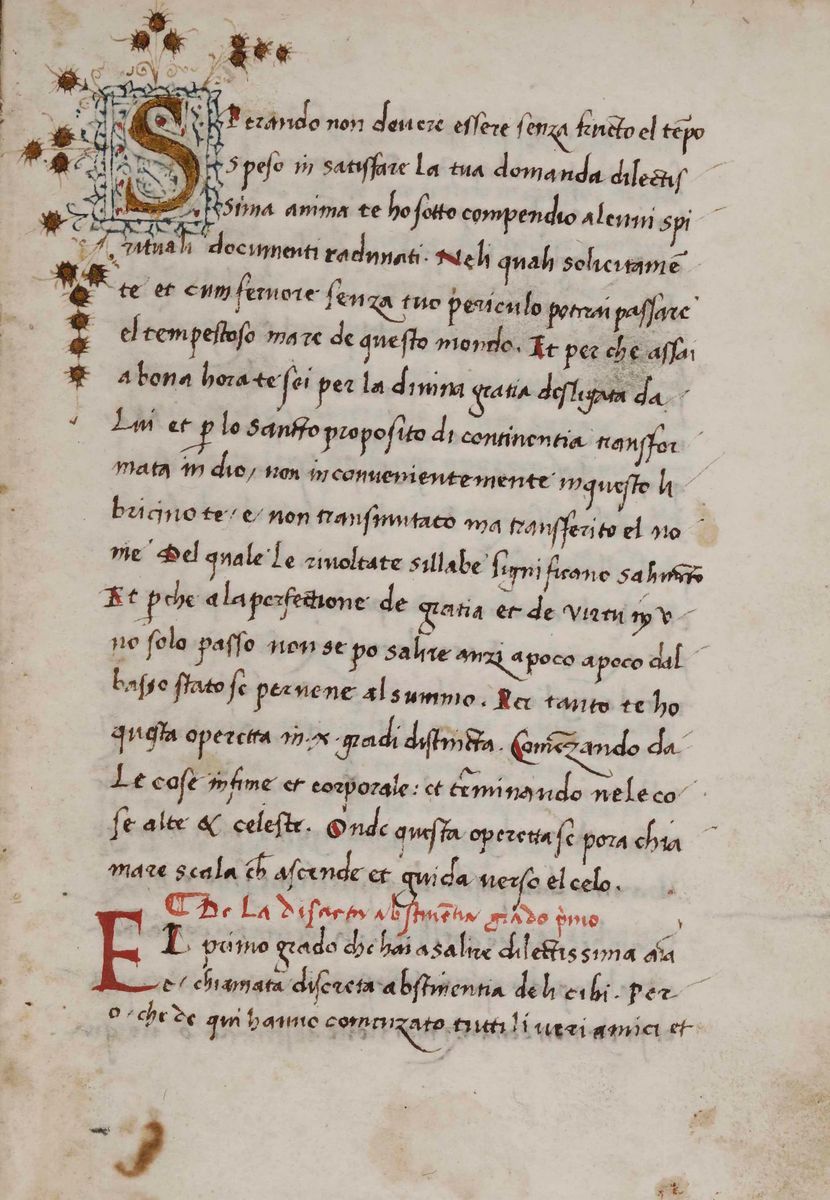 SPerando non devere essere senza fructo el tēpo
speso in satisfare la tua domanda dilectis
sima anima te ho sotto compendio alcuni spi
rituali documenti radunati. Neli quali solicitamē
te et cum fervore senza tuo periculo poterai passare
el tempestoso mare de questo mondo. Et perche assai
a bona hora te sei per la divina gratia desligata da
Lui et ꝑ lo sancto proposito di continentia transfor
mata in dio, non inconvenientemente inquesto li
bricino te, e, non transmutato ma transferito el no
me Del quale le rivoltate sillabe significano salimēto
Et ꝑche a la perfectione de gratia et de virtu in u
no solo passo non se po salire anzi apoco apoco dal
basso stato se pervene al summo. Per tanto te ho
questa operetta in .x. gradi distincta. Comēzando da
Le cose infime et corporale: et t̄minando nele co
se alte & celeste. Onde questa operetta se pora chia
mare scala ch̄ ascende et guida verso el celo.
¶ De La discreta abstinētia grado p̄mo
EL primo grado che hai a salire dilectissima aīa
e, chiamata discreta abstinentia deli cibi. Per
o, che de qui hanno comenzato tutti li veri amici et